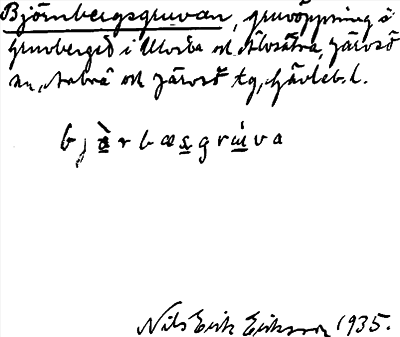 Björnbergsgruvan, gruvöppning å
Gruvberget i Utvika och Älvsätra, Järvsö
sn, Arbrå och Järvsö tg, Gävleb. l.
bjὰrbæsgrúva
Nils Erik Eriksson 1935.